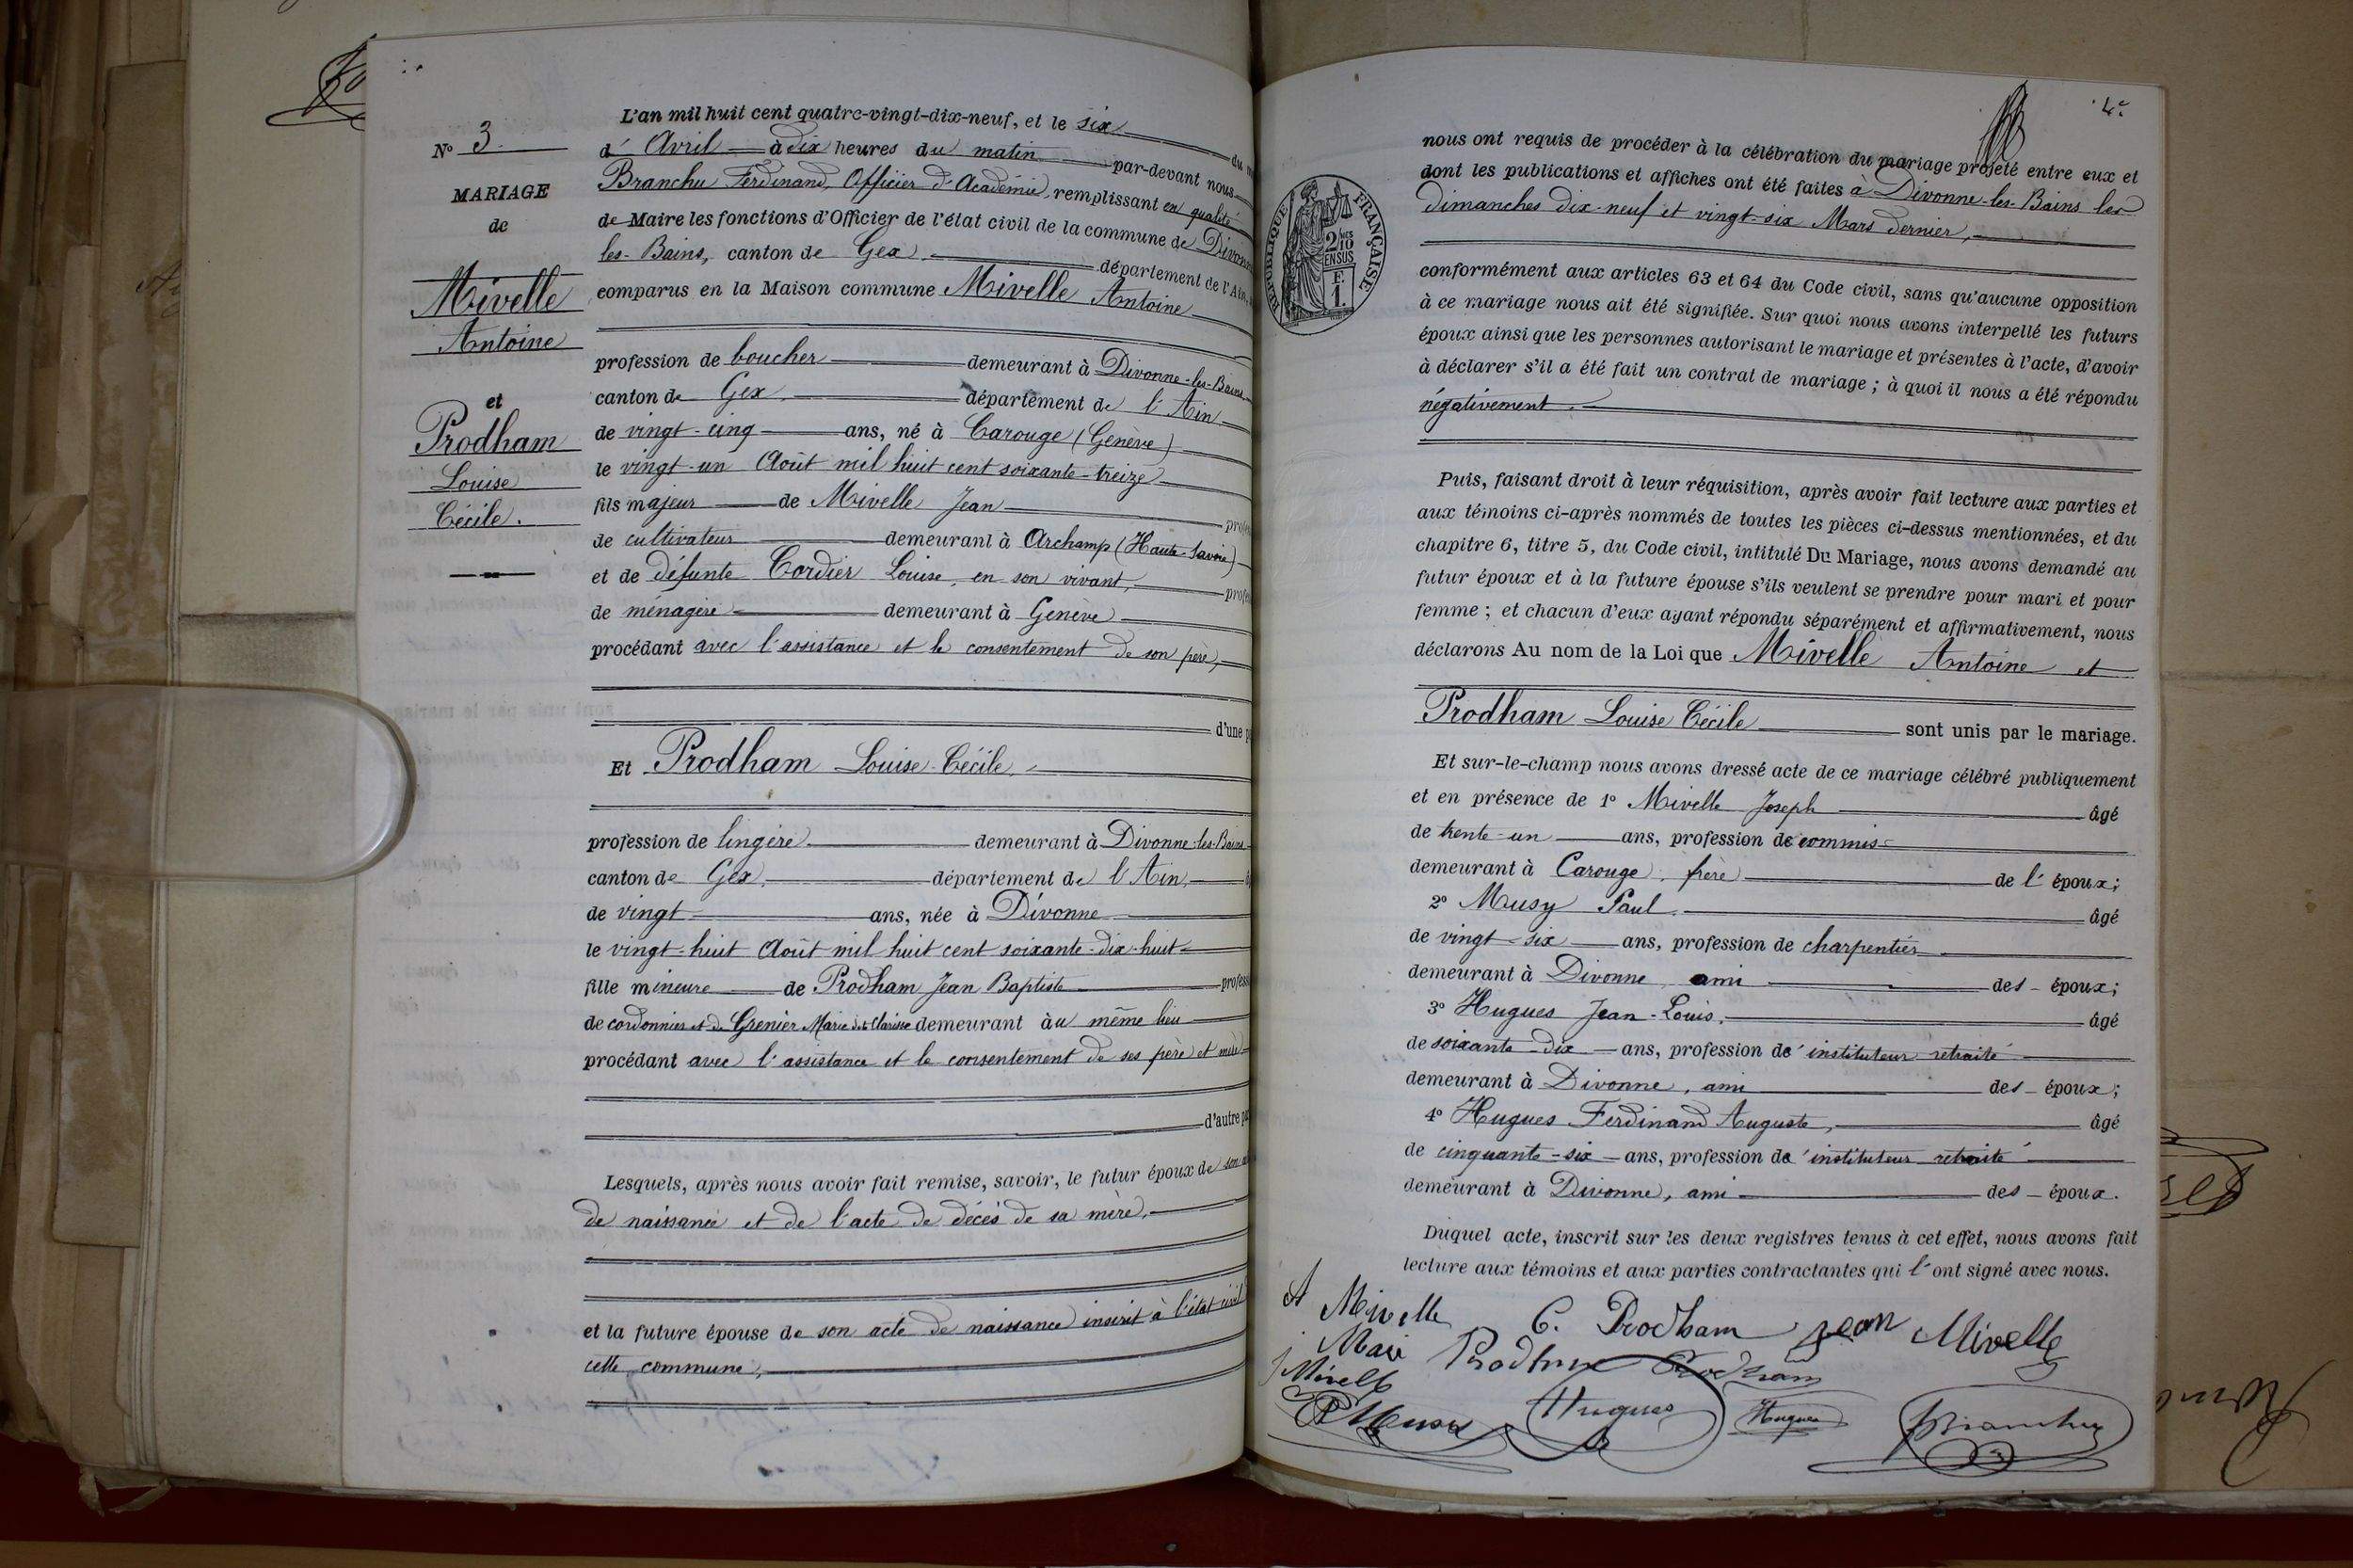 N° 3
MARIAGE
de
Mivelle
Antoine
et
Prodham
Louise
Cécile.
L'an mil huit cent quatre-vingt-dix-neuf, et le six du
d' Avril à dix heures du matin par-devant nous
Branchu Ferdinand, Officier d'Académie, remplissant en qualité
de Maire les fonctions d'Officier de l'état civil de la commune de Divonne
les-Bains, canton de Gex, département de l'Ain,
comparus en la Maison commune Mivelle Antoine
profession de boucher demeurant à Divonne-les-Bains
canton de Gex, département de l'Ain
de vingt-cinq ans, né à Carouge (Genève)
le vingt-un Août mil huit cent soixante-treize
fils majeur de Mivelle Jean
de cultivateur demeurant à Archamp (Haute-Savoie)
et de défunte Cordier Louise, en son vivant,
de ménagère demeurant à Genève
procédant avec l'assistance et le consentement de son père,
d'une
Et Prodham Louise-Cécile,
profession de lingère demeurant à Divonne-les-Bains
canton de Gex, département de l'Ain,
de vingt ans, née à Divonne
le vingt-huit Août mil huit cent soixante-dix-huit
fille mineure de Prodham Jean Baptiste
de cordonnier et de Grenier Marie dite Clarisse demeurant au même lieu
procédant avec l'assistance et le consentement de ses père et mère
d'autre
Lesquels, après nous avoir fait remise, savoir, le futur époux de son
de naissance et de l'acte de décès de sa mère,
et la future épouse de son acte de naissance inscrit à l'état civil
cette commune,
4e
nous ont requis de procéder à la célébration du mariage projeté entre eux et
dont les publications et affiches ont été faites à Divonne-les-Bains les
dimanches dix-neuf et vingt-six Mars dernier,
RÉPUBLIQUE FRANÇAISE
2/10
EN SUS
F.
1.
conformément aux articles 63 et 64 du Code civil, sans qu'aucune opposition
à ce mariage nous ait été signifiée. Sur quoi nous avons interpellé les futurs
époux ainsi que les personnes autorisant le mariage et présentes à l'acte, d'avoir
à déclarer s'il a été fait un contrat de mariage ; à quoi il nous a été répondu
négativement.
Puis, faisant droit à leur réquisition, après avoir fait lecture aux parties et
aux témoins ci-après nommés de toutes les pièces ci-dessus mentionnées, et du
chapitre 6, titre 5, du Code civil, intitulé Du Mariage, nous avons demandé au
futur époux et à la future épouse s'ils veulent se prendre pour mari et pour
femme ; et chacun d'eux ayant répondu séparément et affirmativement, nous
déclarons Au nom de la Loi que Mivelle Antoine et
Prodham Louise Cécile sont unis par le mariage.
Et sur-le-champ nous avons dressé acte de ce mariage célébré publiquement
et en présence de 1° Mivelle Joseph âgé
de trente-un ans, profession de commis
demeurant à Carouge, frère de l'époux;
2° Musy Paul, âgé
de vingt-six ans, profession de charpentier
demeurant à Divonne, ami des époux;
3° Hugues Jean-Louis, âgé
de soixante-dix ans, profession d'instituteur retraité
demeurant à Divonne, ami des époux;
4° Hugues Ferdinand Auguste, âgé
de cinquante-six ans, profession d'instituteur retraité
demeurant à Divonne, ami des époux.
Duquel acte, inscrit sur les deux registres tenus à cet effet, nous avons fait
lecture aux témoins et aux parties contractantes qui l'ont signé avec nous.
A Mivelle C. Prodham Jean Mivelle
Marie Prodham Prodham
J Mivelle
P Musy Hugues Hugues Branchu